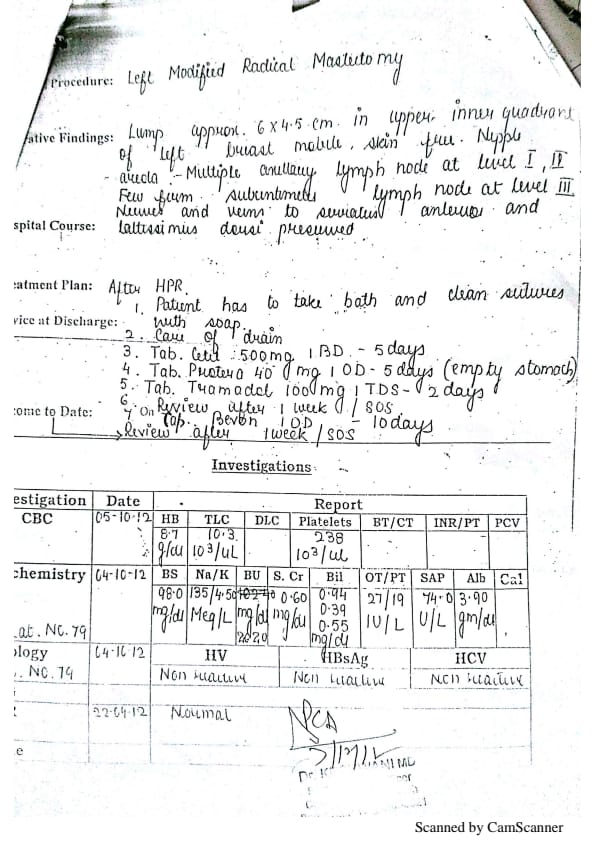 Procedure: Left Modified Radical Mastectomy
ative Findings: Lump approx. 6 x 4.5 cm. in upper inner quadrant
of left breast mobile, skin free. Nipple
areola - Multiple axillary lymph node at level I, II
Few firm subcentimetric lymph node at level III
Nerves and veins to serratus anterior and
spital Course: lattissimus dorsi preserved
eatment Plan: After HPR.
1. Patient has to take bath and clean sutures
vice at Discharge: with soap.
2. Care of drain
3. Tab. Cetil 500mg 1 BD - 5 days
4. Tab. 40 mg 1 OD - 5 days (empty stomach)
5. Tab. Tramadol 100mg 1 TDS - 2 days
6. Review after 1 week / SOS.
come to Date: 7 Cap. Bevon 1 OD - 10 days
Review after 1 week / SOS
Investigations
estigation Date Report
CBC 05-10-12 HB TLC DLC Platelets BT/CT INR/PT PCV
8.7 10.3 238
g/dl 10³/uL 10³/ul
chemistry 04-10-12 BS Na/K BU S. Cr Bil OT/PT SAP Alb Cal
98.0 135/4.50 0.60 0.94 27/19 74.0 3.90
mg/dl Meq/L mg/dl mg/dl 0.39 IU/L U/L gm/dl
at. NO. 79 20.20 0.55
mg/dl
ology 04-10-12 HV HBsAg HCV
. NO. 79 Non reactive Non reactive Non reactive
22-04-12 Normal
e
Scanned by CamScanner